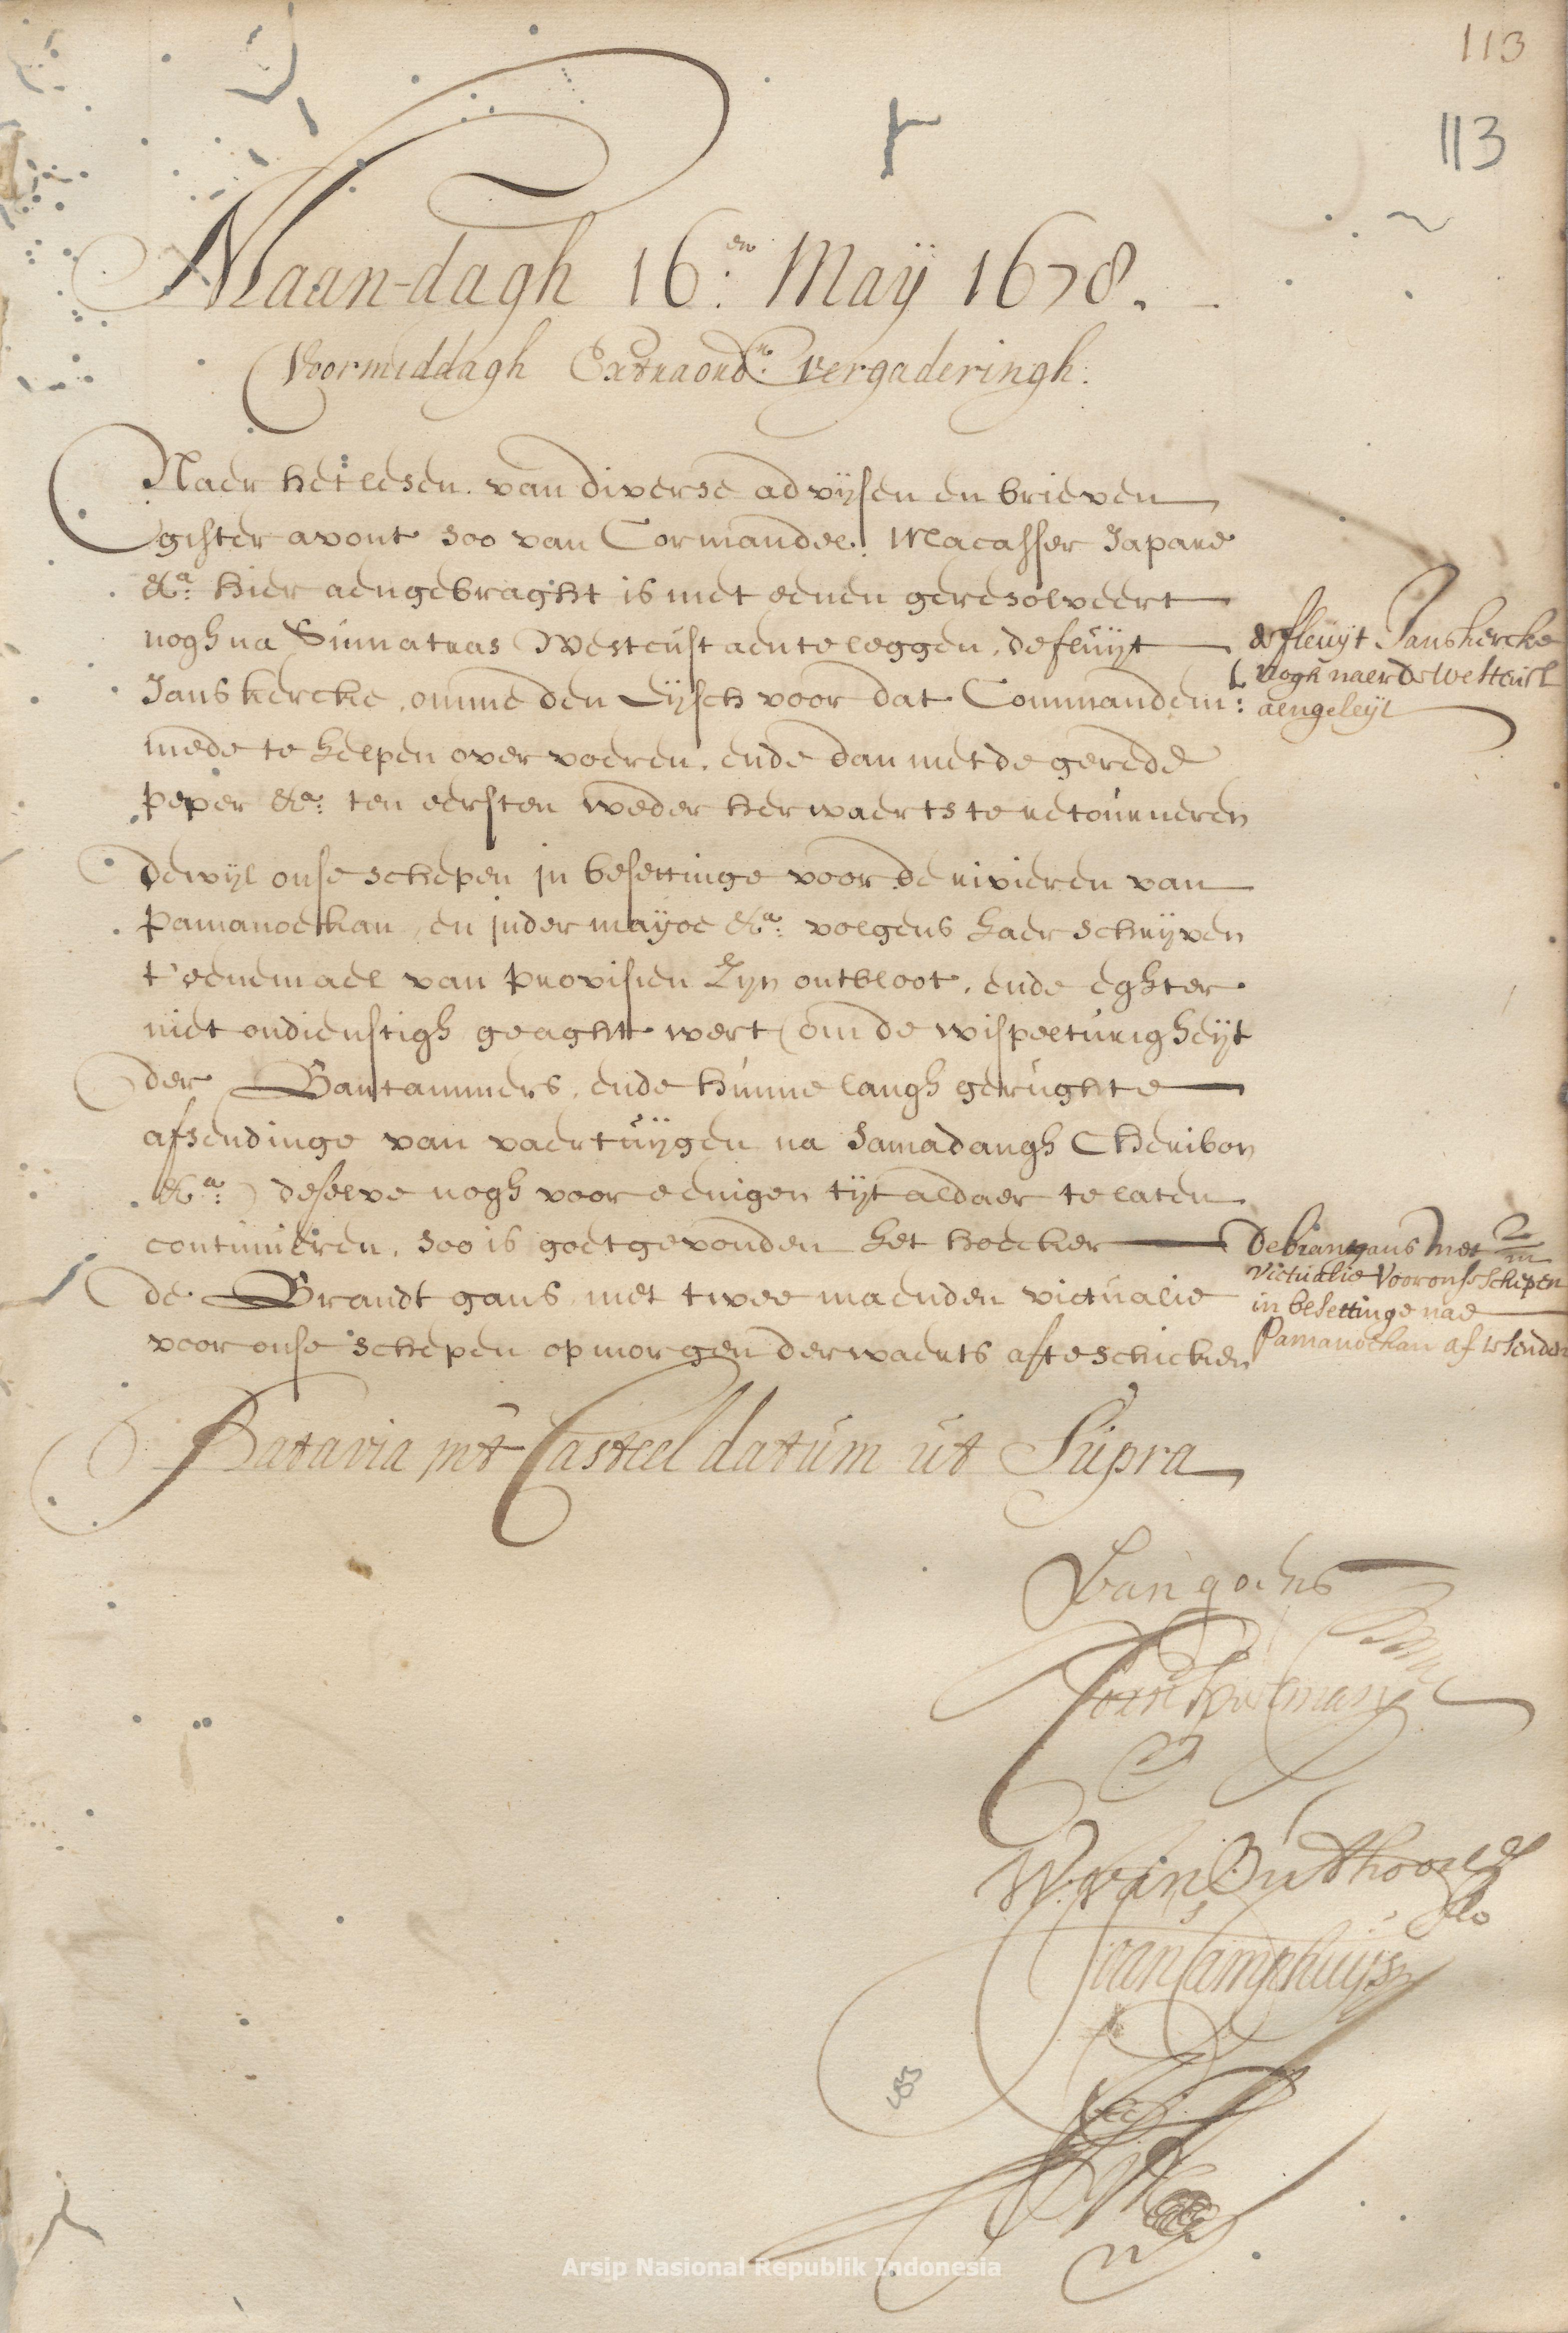 113
113
Maan-dagh 16:en Maÿ 1678.
Voormiddagh Extraord:re vergaderingh.
Naer het lesen van diverse advijsen en brieven
gister avont soo van Cormandel, Macasser Japare
&a: hier aengebraght is met eenen geresolveert
nogh na Summatras Westcust aen te leggen, de fluijt
Janskercke, omme den Eijsch voor dat Commandem:t
mede te helpen over voeren, ende dan met de gerede
peper &a: ten eersten weder herwaerts te retourneren
de fleuijt Janskercke
nogh naer de Westcust
aengeleijt
dewijl onse schepen in besettinge voor de rivieren van
Pamanoekan, en Indermayoe &a: volgens haer schrijven
t'eenemael van provisien zijn ontbloot, ende eghter
niet ondienstigh geaght wert (om de wispelturigheijt
der Bantammers, ende hunne langh gerughte
afsendinge van vaertuijgen na Samadangh Cheribon
&a:) deselve nogh voor eenigen tijt aldaer te laten
continueren, soo is goetgevonden het hoecker
de Brandtgans met twee maenden victualie
voor onse schepen op morgen derwaerts af te schicken
de brantgans met 2/m
victualie voor onse schepen
in besettinge nae
Pamanoekan af te senden
Batavia int Casteel datum ut Supra
Van goens
W. van Outhoorn
Joan Camphuijs
Arsip Nasional Republik Indonesia